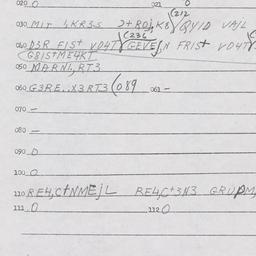 020 0 021 0
030 MIT 4KR3SS 2+R0j,K8 (212 QYID VAJL
040 D3R FIST VD4T (236 GEVE,N FRIST VD4T
G8IST ME4KT
050 MARN1,RT3
060 G3RE..X3RT3 (089 061 -
070 -
080 -
090 0
100 0
110 RE4,C+NMEjL RE4,C+3N3 GRUPM,
111 0 112 0